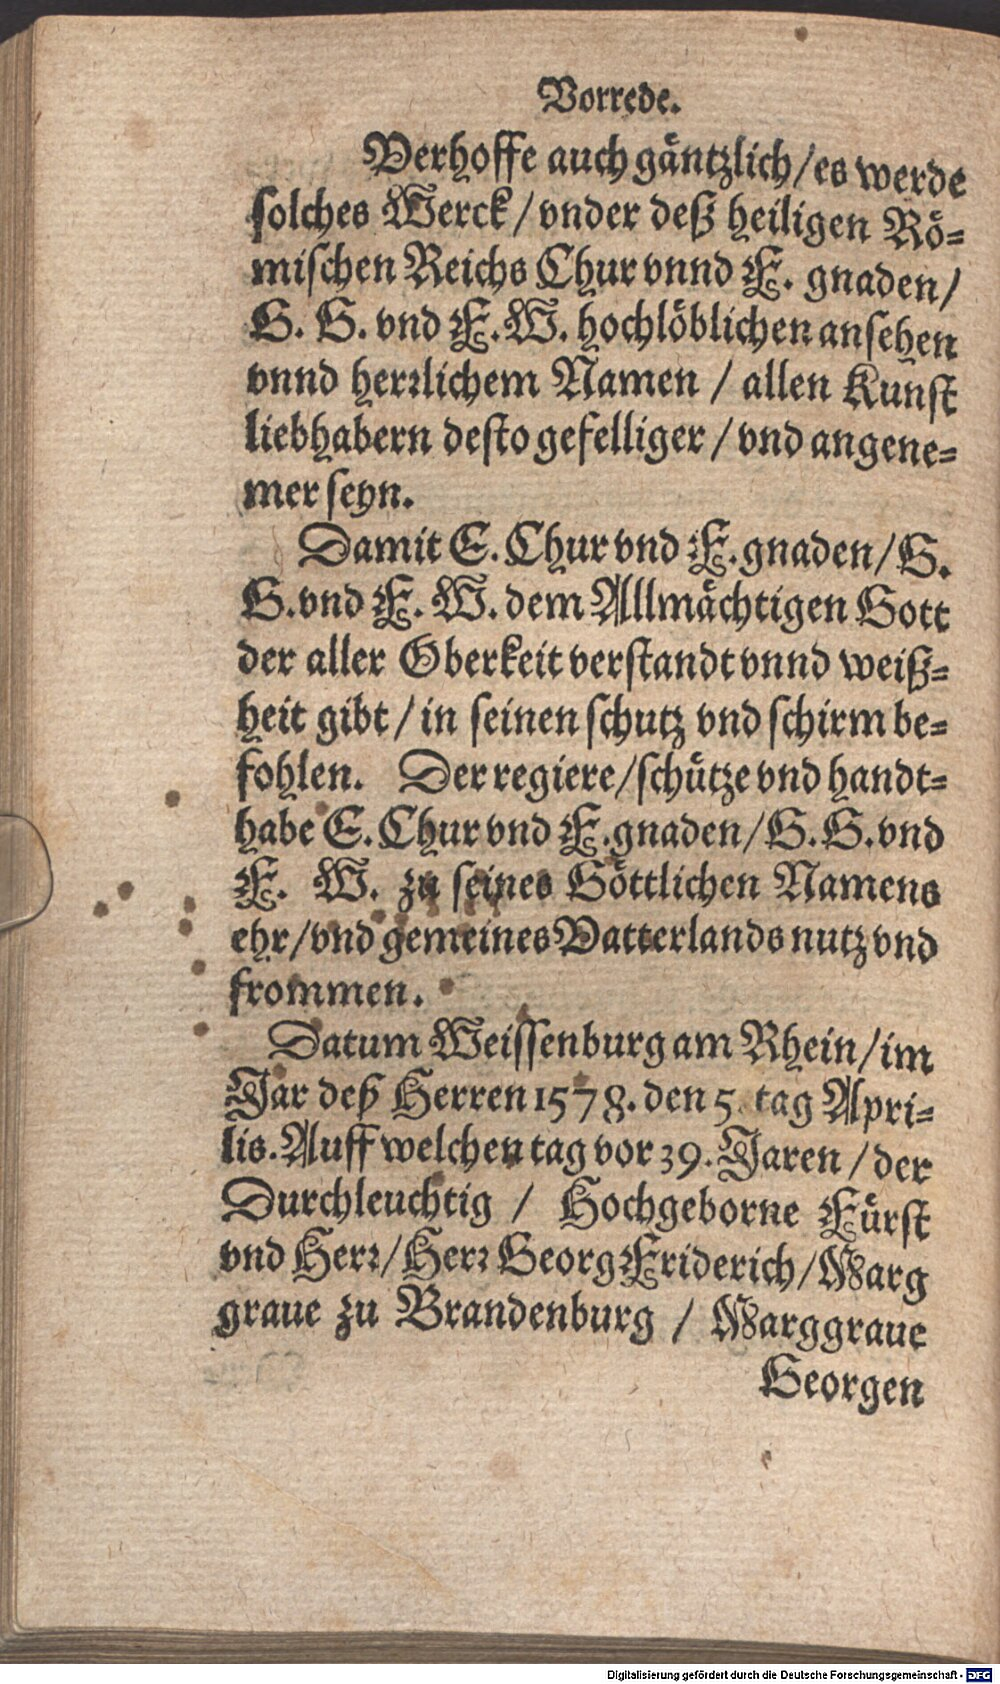 Vorrede.
Verhoffe auch gäntzlich/es werde
solches Werck/vnder deß heiligen Rö-
mischen Reichs Chur vnnd F. gnaden/
G. G. vnd F. W. hochlöblichen ansehen
vnnd herrlichem Namen / allen Kunst
liebhabern desto gefelliger / vnd angene-
mer seyn.
Damit E. Chur vnd F. gnaden/G.
G. vnd F. W. dem Allmächtigen Gott
der aller Oberkeit verstandt vnnd weiß-
heit gibt / in seinen schutz vnd schirm be-
fohlen. Der regiere/schütze vnd handt-
habe E. Chur vnd F. gnaden/G. G. vnd
F. W. zu seines Göttlichen Namens
ehr/vnd gemeines Vatterlands nutz vnd
frommen.
Datum Weissenburg am Rhein/im
Jar deß Herren 1578. den 5. tag Apri-
lis. Auff welchen tag vor 39. Jaren / der
Durchleuchtig / Hochgeborne Fürst
vnd Herr/Herr Georg Friderich/Marg
graue zu Brandenburg / Marggraue
Georgen
Digitalisierung gefördert durch die Deutsche Forschungsgemeinschaft - DFG